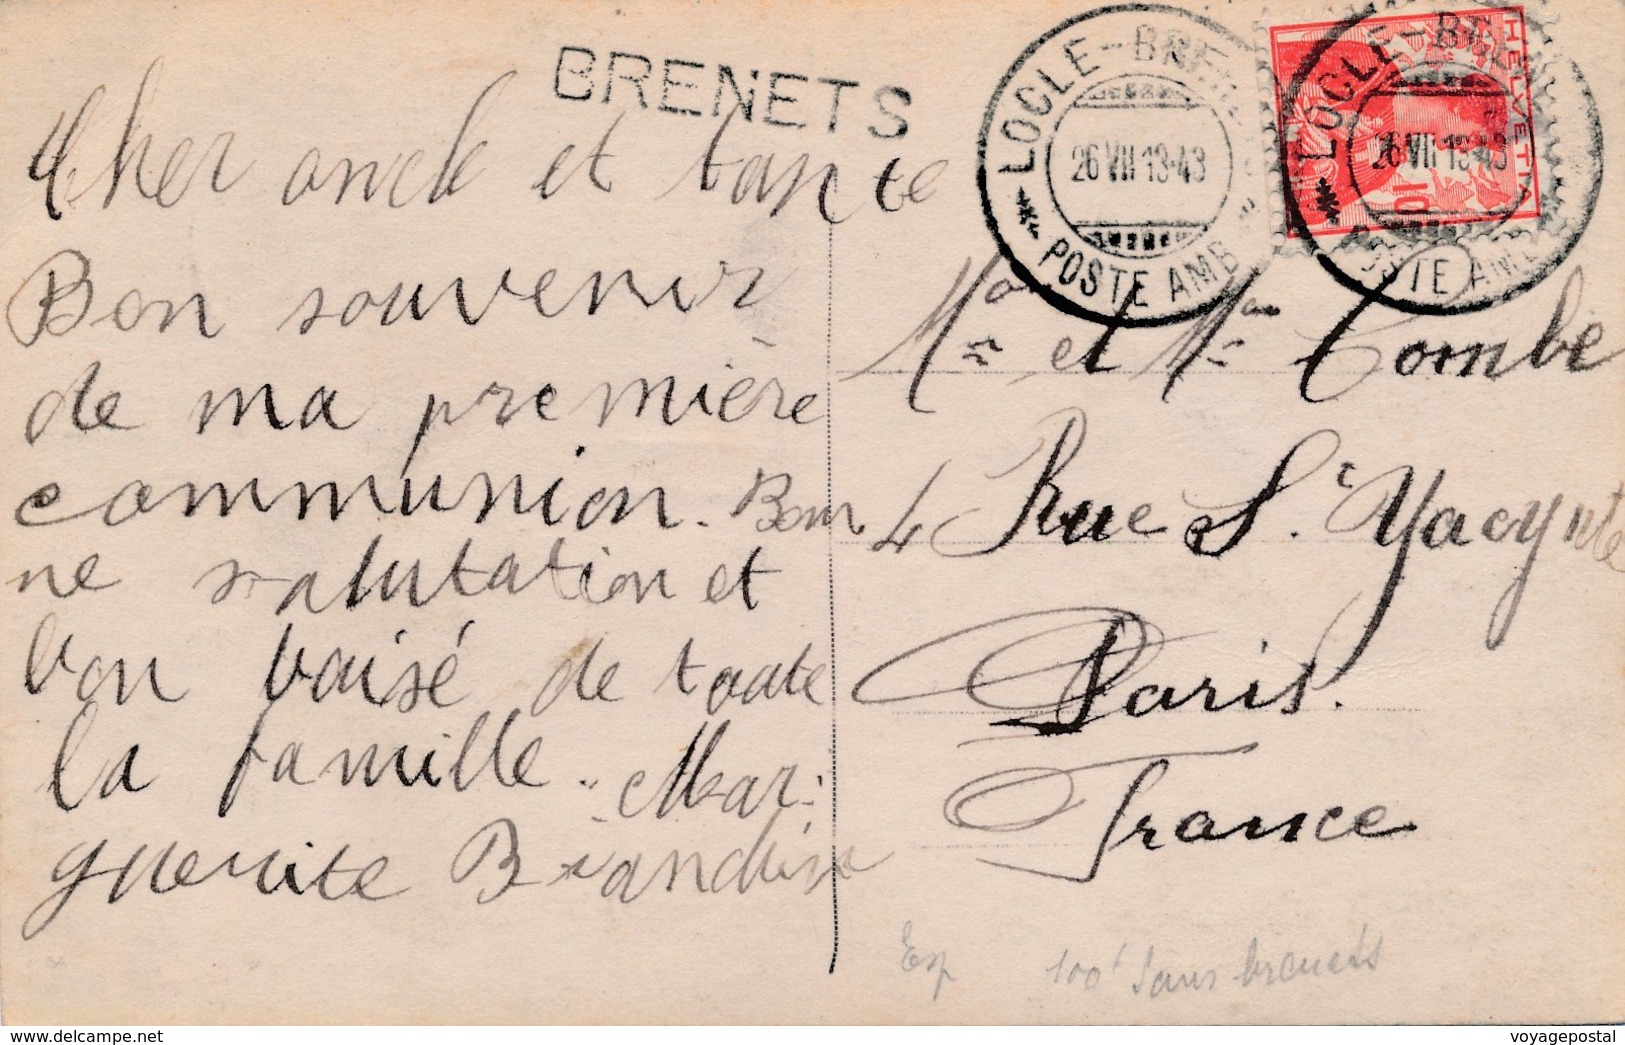 BRENETS
LOCLE-BRENETS
26 VII 13-43
POSTE AMB
HELVETIA
10
LOCLE-BRE
26 VII 13-43
POSTE AMB
Cher oncle et tante
Bon souvenir
de ma première
communion. Bon
ne salutation et
bon baisé de toute
la famille. Mar-
guerite
Mr et Me Combe
4 Rue St. Yacynte
Paris.
France
Exp 100f sans brenets
www.delcampe.net
voyagepostal